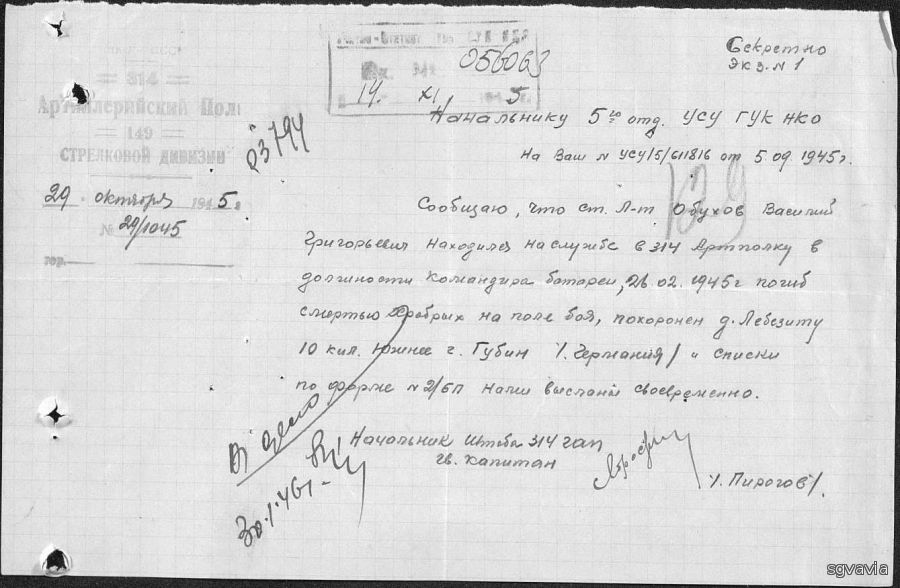 Секретно
Экз. N 1
056063
14. XI. 5
314
Артиллерийский Полк
149
СТРЕЛКОВОЙ ДИВИЗИИ
29 октября 1945 г
№ 29/1045
гор.
03794
Начальнику 5го отд. УСУ ГУК НКО
На Ваш N УСУ/5/611816 от 5.09.1945г.
Сообщаю, что ст. Л-т Обухов Василий
Григорьевич находился на службе в 314 Артполку в
должности командира батареи, 26.02.1945г погиб
смертью храбрых на поле боя, похоронен д. Лебезиту
10 кил. Южнее г. Губин /. Германия/ и списки
по форме N 2/БП нами высланы своевременно.
Начальник Штаба 314 гап
гв. капитан
/. Пирогов/.
В дело
30.1.46г.
sgvavia